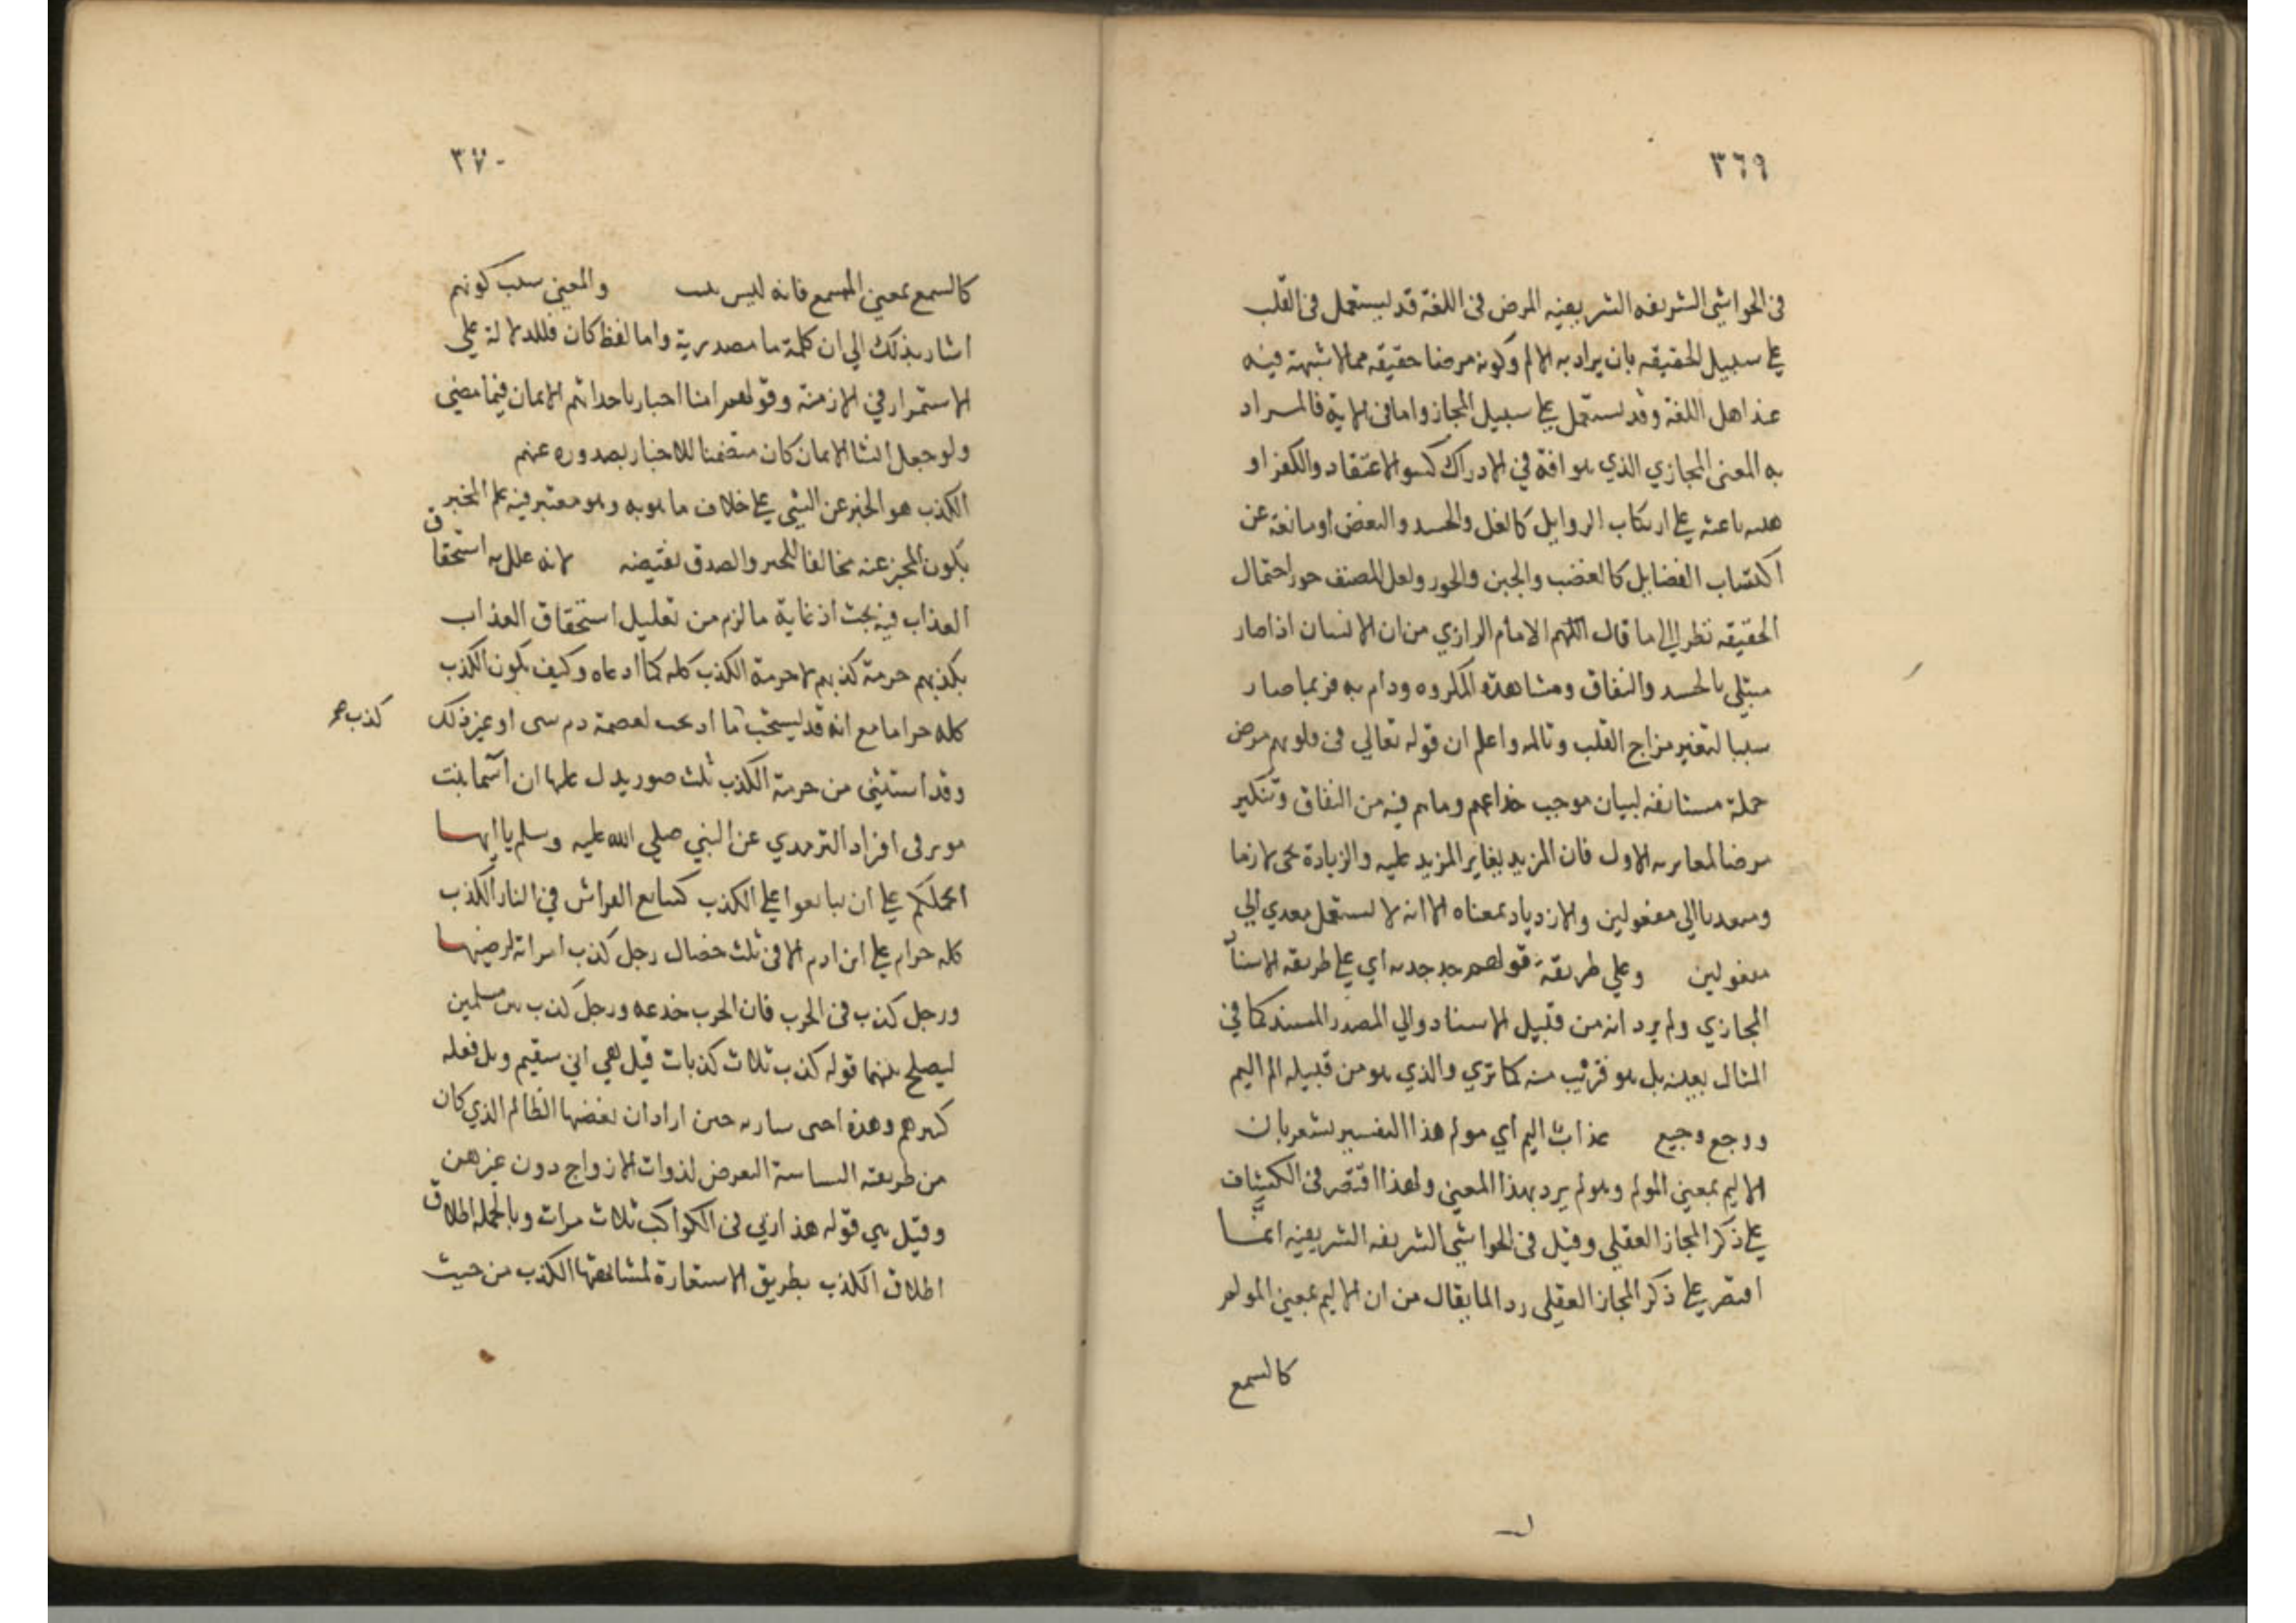 ٣٦٩
فى الحواشى الشريفه الشريفيه المرض فى اللغة قد يستعمل فى القلب
على سبيل الحقيقه بان يراد به الالم وكونه مرضا حقيقه مما لا شبهة فيه
عند اهل اللغة وقد يستعمل على سبيل المجاز واما فى الاية فالمراد
به المعنى المجازي الذي هو افة في الادراك كسو الاعتقاد والكفر او
هيه باعثه على ارتكاب الروايل كالغل والحسد والبغض او مانعة عن
اكتساب الفضايل كالغضب والجبن والخور ولعل المصنف جوز احتمال
الحقيقه نظر الى ما قال الامام الرازي من ان الانسان اذا صار
مبتلى بالحسد والنفاق ومشاهدة المكروه ودام به فربما صار
سببا لتغير مزاج القلب وتالمه واعلم ان قوله تعالي فى قلوبهم مرض
جملة مستانفه لبيان موجب خداعهم وما هم فيه من النفاق وتنكير
مرضا لمغايرته الاول فان المزيد يغاير المزيد عليه والزيادة تجى لازما
ومتعديا الى مفعولين والازدياد بمعناه الا انه لا يستعمل معدي الي
مفعولين وعلى طريقة قولهم جد جده اي على طريقه الاسناد
المجازي ولم يرد انه من قبيل الاسناد والي المصدر المسند كما في
المثال بعينه بل هو قريب منه كما تري والذي هو من قبيله الم اليم
ووجع وجيع عذاب اليم اي مولم هذا التفسير يشعر بان
الاليم بمعنى المولم وهو لم يرد بهذا المعنى ولهذا اقتصر فى الكشاف
على ذكر المجاز العقلى وقيل فى الحواشى الشريفه الشريفيه انما
اقتصر على ذكر المجاز العقلى رد الما يقال من ان الاليم بمعنى المولم
كالسمع
٣٧٠
كالسمع بمعنى المسمع فانه ليس والمعنى سبب كونهم
اشار بذلك الى ان كلمة ما مصدرية واما لفظ كان فللدلالة على
الاستمرار في الازمنة وقولهم امنا اخبار باحداثهم الايمان فيما مضى
ولو جعل انشا الايمان كان متضمنا للاخبار بصدوره عنهم
الكذب هو الخبر عن الشي على خلاف ما هو به وهو معتبر فيه علم المخبر
بكون المخبر عنه مخالفا للخبر والصدق نقيضه لانه علل به استحقاق
العذاب فيه بحث اذ غاية ما لزم من تعليل استحقاق العذاب
بكذبهم حرمة كذبهم لا حرمة الكذب كله كما ادعاه وكيف يكون الكذب
كله حراما مع انه قد يستحب بما اد لعصمة دم او غير ذلك
كذب
وقد استثنى من حرمة الكذب ثلث صور يدل عليها ان اسما بنت
افراد الترمدي عن النبي صلى الله عليه وسلم يا ايها
على ان تبايعوا على الكذب كتتابع الفراش في النار الكذب
كله حرام على ابن ادم الا فى ثلث خصال رجل كذب امراته لرضيها
ورجل كذب فى الحرب فان الحرب خدعه ورجل كذب بين مسلمين
ليصلح بينهما قوله كذب ثلاث كذبات قيل هي اني سقيم وبل فعله
كبيرهم وهذه اختى ساره حين اراد ان يغضبها الظالم الذي كان
من طريقته السياسة التعرض لذوات الازواج دون غيرهن
وقيل هي قوله هذا ربي فى الكواكب ثلاث مرات وبالجمله اطلاق
اطلاق الكذب بطريق الاستعارة لمشابهتها الكذب من حيث